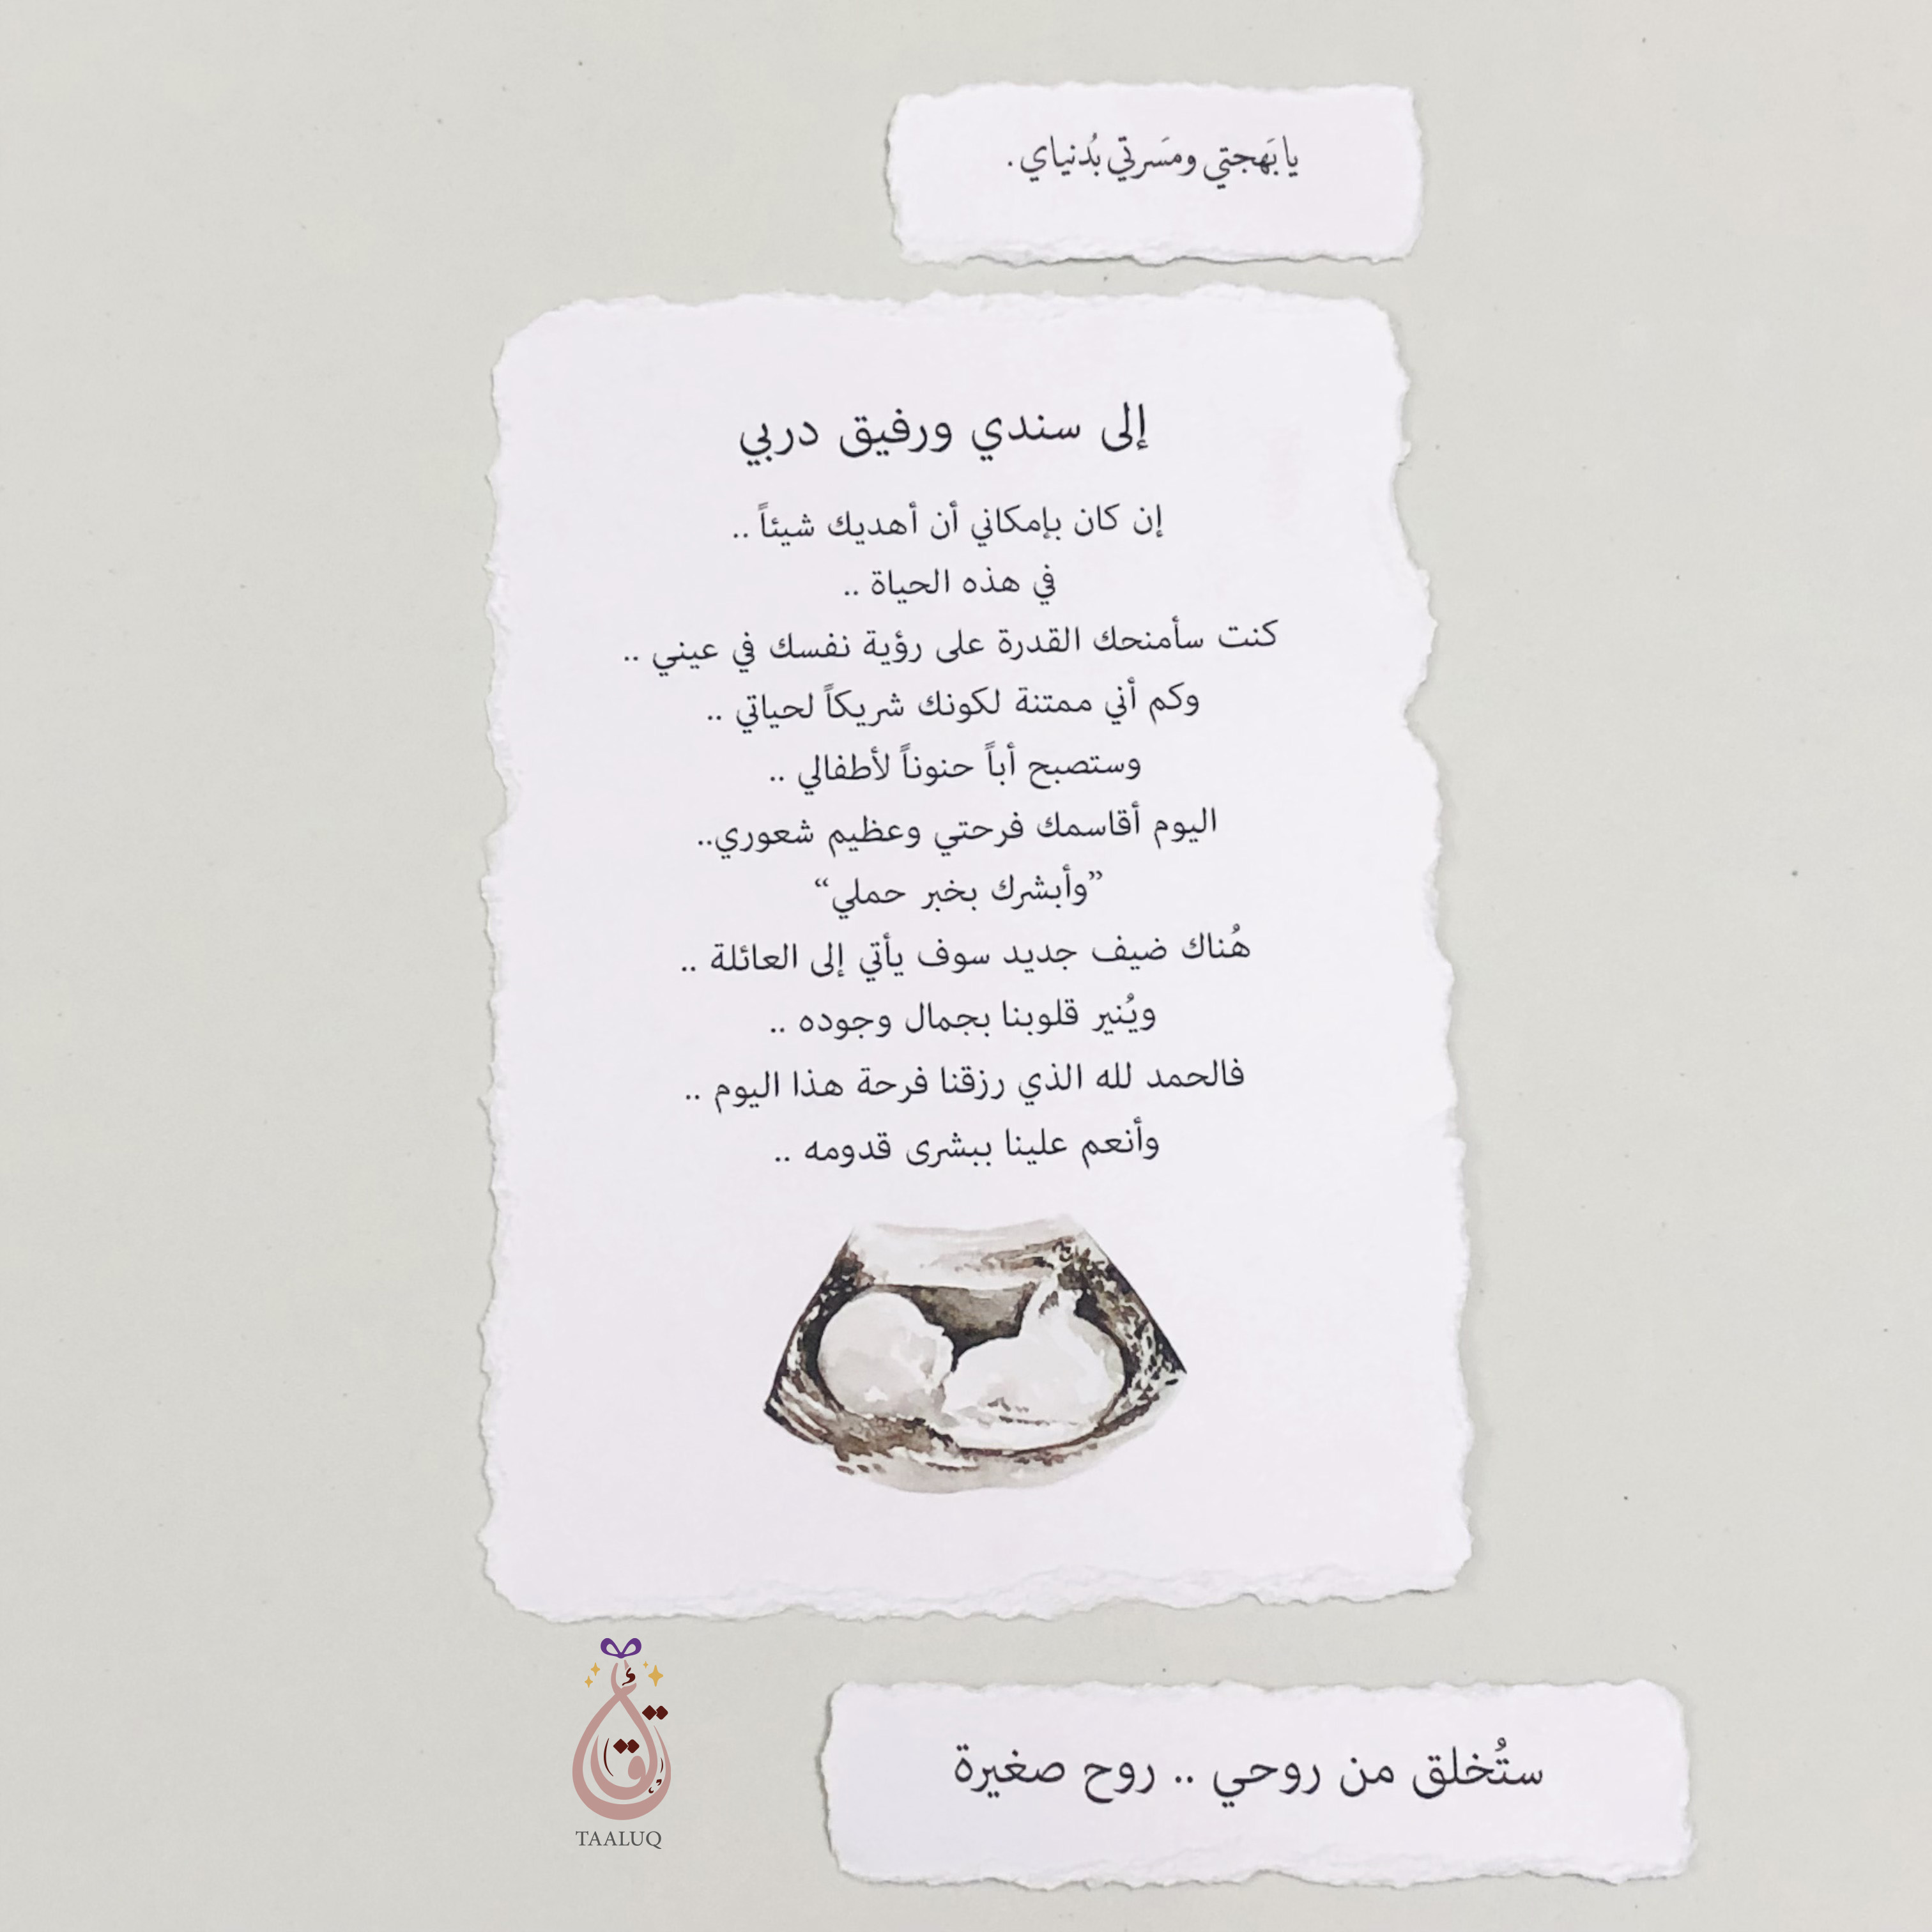 يا بَهجتي ومسَرتي بدُنياي .
إلى سندي ورفيق دربي
إن كان بإمكاني أن أهديك شيئاً ..
في هذه الحياة ..
كنت سأمنحك القدرة على رؤية نفسك في عيني ..
وكم أني ممتنة لكونك شريكاً لحياتي ..
وستصبح أباً حنوناً لأطفالي ..
اليوم أقاسمك فرحتي وعظيم شعوري..
”وأبشرك بخبر حملي“
هُناك ضيف جديد سوف يأتي إلى العائلة ..
ويُنير قلوبنا بجمال وجوده ..
فالحمد لله الذي رزقنا فرحة هذا اليوم ..
وأنعم علينا ببشرى قدومه ..
TAALUQ
ستُخلق من روحي .. روح صغيرة